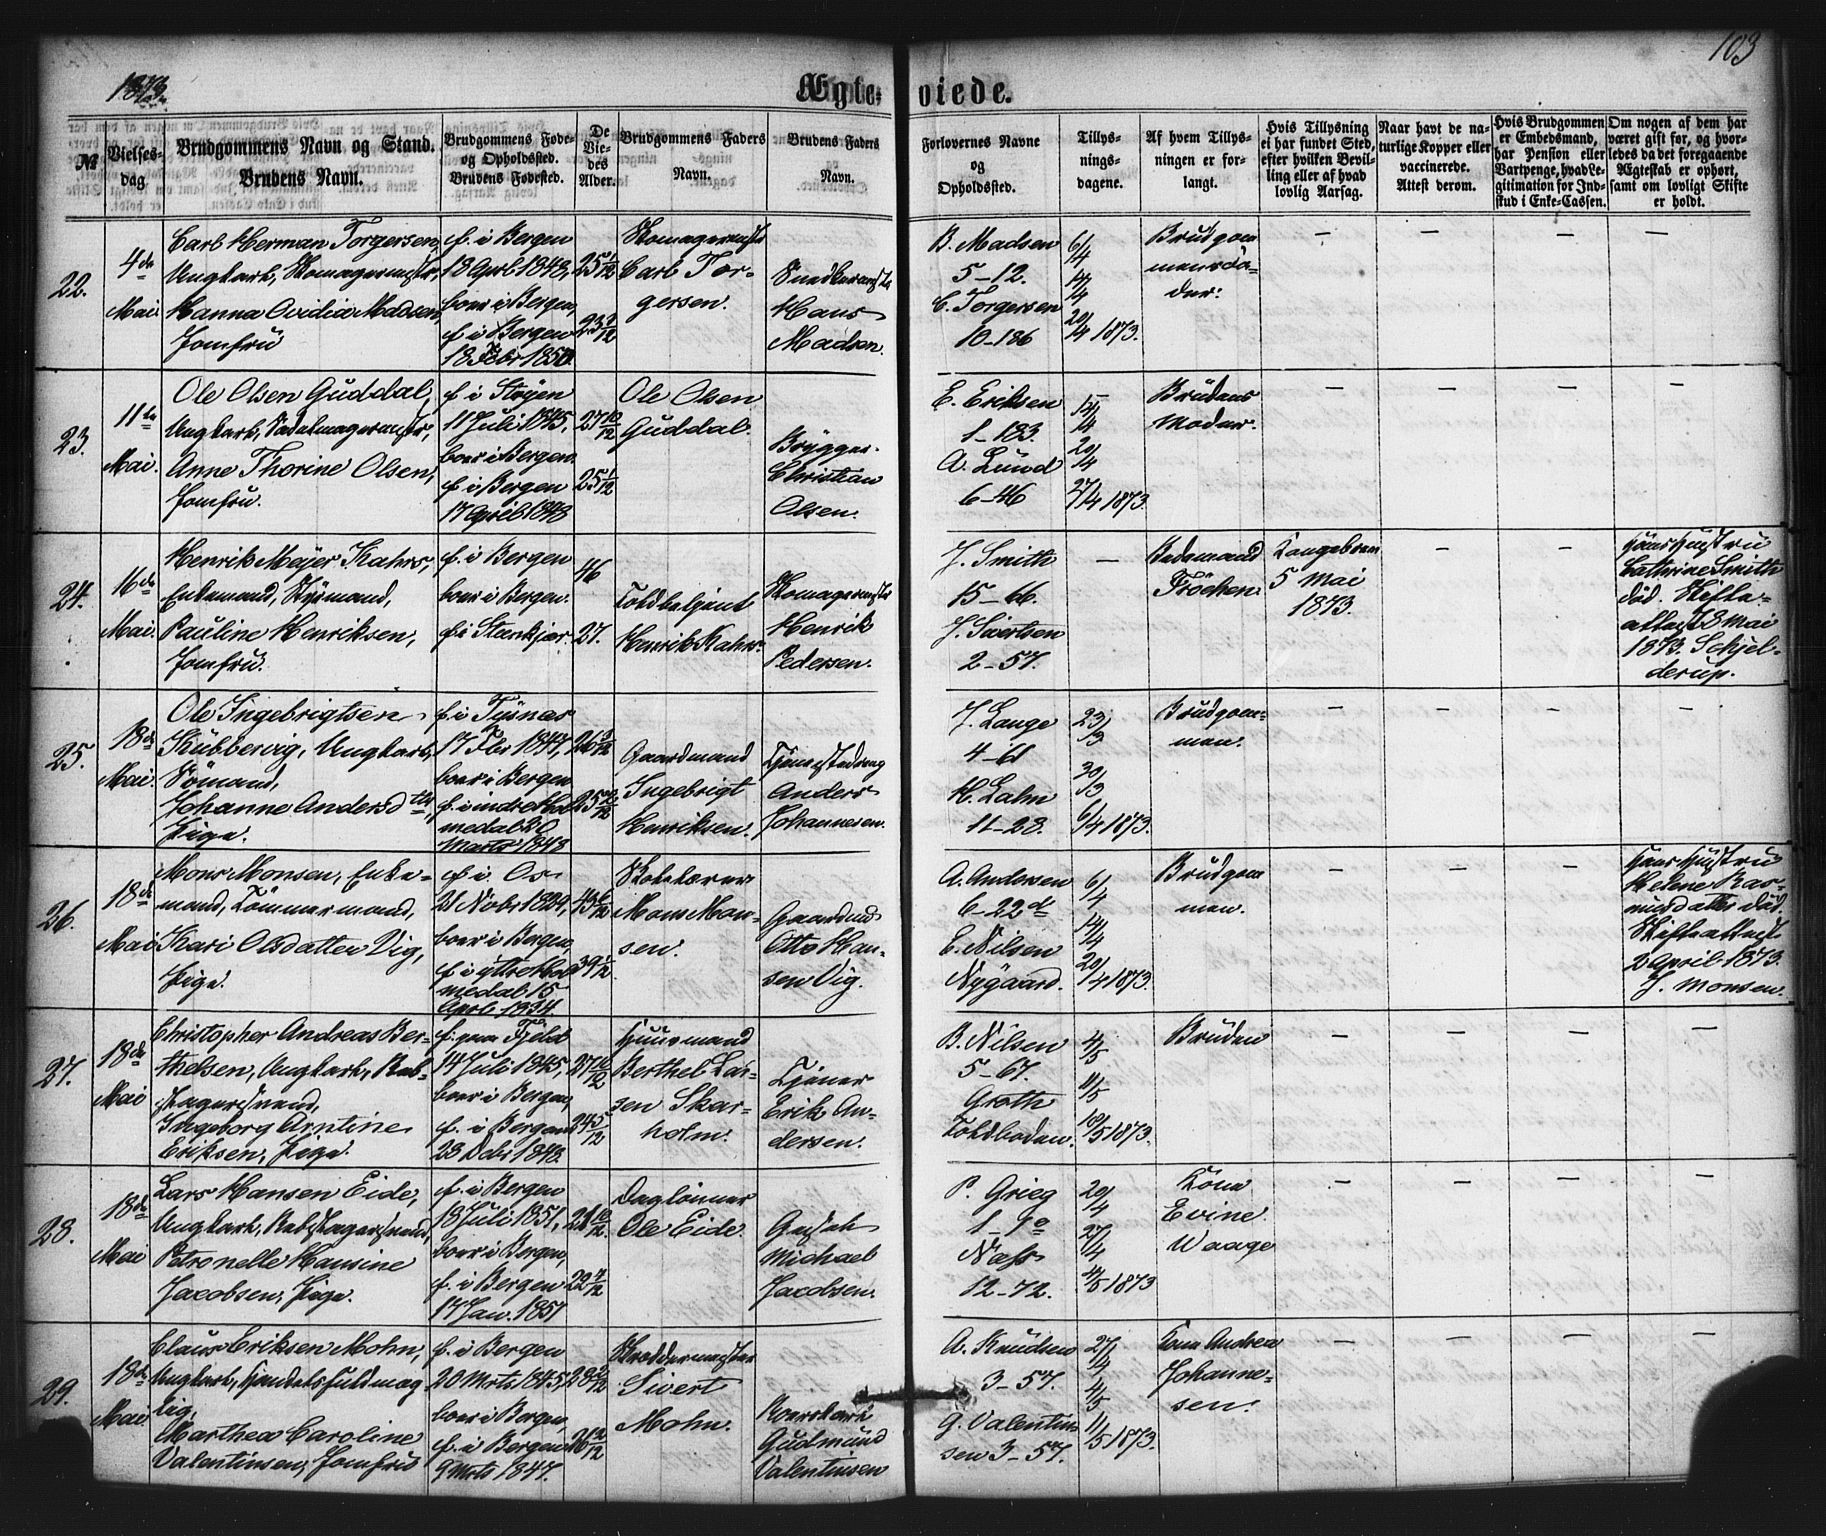 103
1873
Ægte-
viede.
№
Vielses-
dag.
Brudgommens Navn og Stand.
Brudens Navn.
Brudgommens Føde-
og Opholdssted.
Brudens Fødested.
De
Vie-
des
Alder.
Brudgommens Faders
Navn.
Brudens Faders
Navn.
Forlovernes Navne
og
Opholdssted.
Tillys-
nings-
dagene.
Af hvem Tillys-
ningen er for-
langt.
Hvis Tillysning
ei har fundet Sted,
efter hvilken Bevil-
ling eller af hvad
lovlig Aarsag.
Naar havt de na-
turlige Kopper eller
vaccinerede.
Attest derom.
Hvis Brudgommen
er Embedsmand,
har Pension eller
Vartpenge, hvad Le-
gitimation for Ind-
skud i Enke-Cassen.
Om nogen af dem har
været gift før, og hvor-
ledes da det foregaaende
Ægteskab er ophørt,
samt om lovligt Skifte
er holdt.
22.
4de
Mai.
Carl Herman Torgersen,
Ungkarl, Skomagermester,
Hanna Ovidia Madsen,
Jomfru
f. i Bergen
18 April 1848,
boer i Bergen,
f. i Bergen
18 Febr 1850.
Skomagermester
Carl Tor-
gersen.
Snedkermester
Hans
Madsen.
B. Madsen
5-12.
C. Torgersen
10-186
6/4
14/4
20/4 1873.
Brudgom
mens Fa-
der:
— — — —
23.
11te
Mai.
Ole Olsen Guddal,
Ungkarl, Sadelmagermester,
Anne Thorine Olsen,
Jomfru.
f. i
11 Juli 1845,
boer i Bergen.
f. i Bergen
17 April 1848
27 10/12
25 1/12
Ole Olsen
Guddal.
Brygger
Christian
Olsen.
E. Eriksen
1-183.
A. Lund
6-46
14/4
20/4
27/4 1873.
Brudens
Moder.
— — — —
24.
16de
Mai.
Henrik Meyer Kahrs,
Enkemand, Styrmand,
Pauline Henriksen,
Jomfru.
f. i Bergen
boer i Bergen.
f. i Stenkjær.
46
27.
Toldbetjent
Henrik Kahrs.
Skomagermester
Henrik
Pedersen.
J. Smith
15-66.
J. Sivertsen
2-57.
—
Bedemand
Frøchen.
Kongebrev
5 Mai
1873.
— —
Hans Hustru
Cathrine Smith
død. Skifte-
attest 8 Mai
1873. Schjel-
derup.
25.
18de
Mai.
Ole Ingebrigtsen
Kubbervig, Ungkarl,
Sömand,
Johanne Andersdtr,
Pige.
f. i Tysnæs
17 Fbr 1847,
boer i Bergen
f. i indre Hol
medal 20
Marts 1848
Gaardmand
Ingebrigt
Henriksen.
Tjenestedreng
Anders
Johannesen.
J. Lange
4-61
H. Lahn
11-28.
23/3
30/3
6/4 1873.
Brudgom-
men.
— — — —
26.
18de
Mai
Mons Monsen, Enke-
mand, Tömmermand,
Kari Olsdatter Vig,
Pige.
f. i Os
21 Novbr 1829,
boer i Bergen
f. i ytre Hol
medal 15
April 1834.
43 6/12
39 1/12.
Skolelærer
Mons Mon-
sen.
Gaardmd
Otto Han-
sen Vig.
A. Andersen
6-22 d
E. Nilsen
Nygaard.
6/4
14/4
20/4 1873.
Brudgom
men.
— — —
Hans Hustru
Helene Ras-
musdatter død.
Skifteattest
2 April 1873.
J. Monsen.
27.
18de
Mai
Christopher Andreas Ber-
thelsen, Ungkarl, Reb-
slagersvend,
Ingeborg Arntine
Eriksen, Pige.
f. paa Fjeld
14 Juli 1845,
boer i Bergen,
f. i Bergen
23 Debr 1848.
27 10/12
24 5/12
Huusmand
Berthel Lar-
sen Skar-
holm.
Tjener
Erik An-
dersen.
B. Nilsen
5-67.
Groth
Toldboden.
4/5
11/5
18/5 1873.
Bruden
— — — —
28.
18de
Mai
Lars Hansen Eide,
Ungkarl, Rebslagersvend,
Petronelle Hansine
Jacobsen, Pige.
f. i Bergen
18 Juli 1851,
boer i Bergen,
f. i Bergen
17 Jan. 1851
21 10/12.
Daglönner
Ole Eide.
Michael
Jacobsen.
P. Grieg
1-9 a
Næss
12-72.
20/4
27/4
4/5 1873
Kone
Evine
Waage
— — — —
29.
18de
Mai.
Claus Eriksen Mohn,
Ungkarl, Handelsfuldmæg
tig,
Marthea Caroline
Valentinsen, Jomfru
f. i Bergen
20 Mrts 1845,
boer i Bergen,
f. i Bergen
9 Mrts 1847.
28 2/12
26 2/12
Skræddermester
Sivert
Mohn.
Gudmund
Valentinsen
A. Knudsen
3-57.
G. Valentin-
sen 3-57.
27/4
4/5
11/5 1873.
Kone Andrea
Johanne-
sen.
— — — —